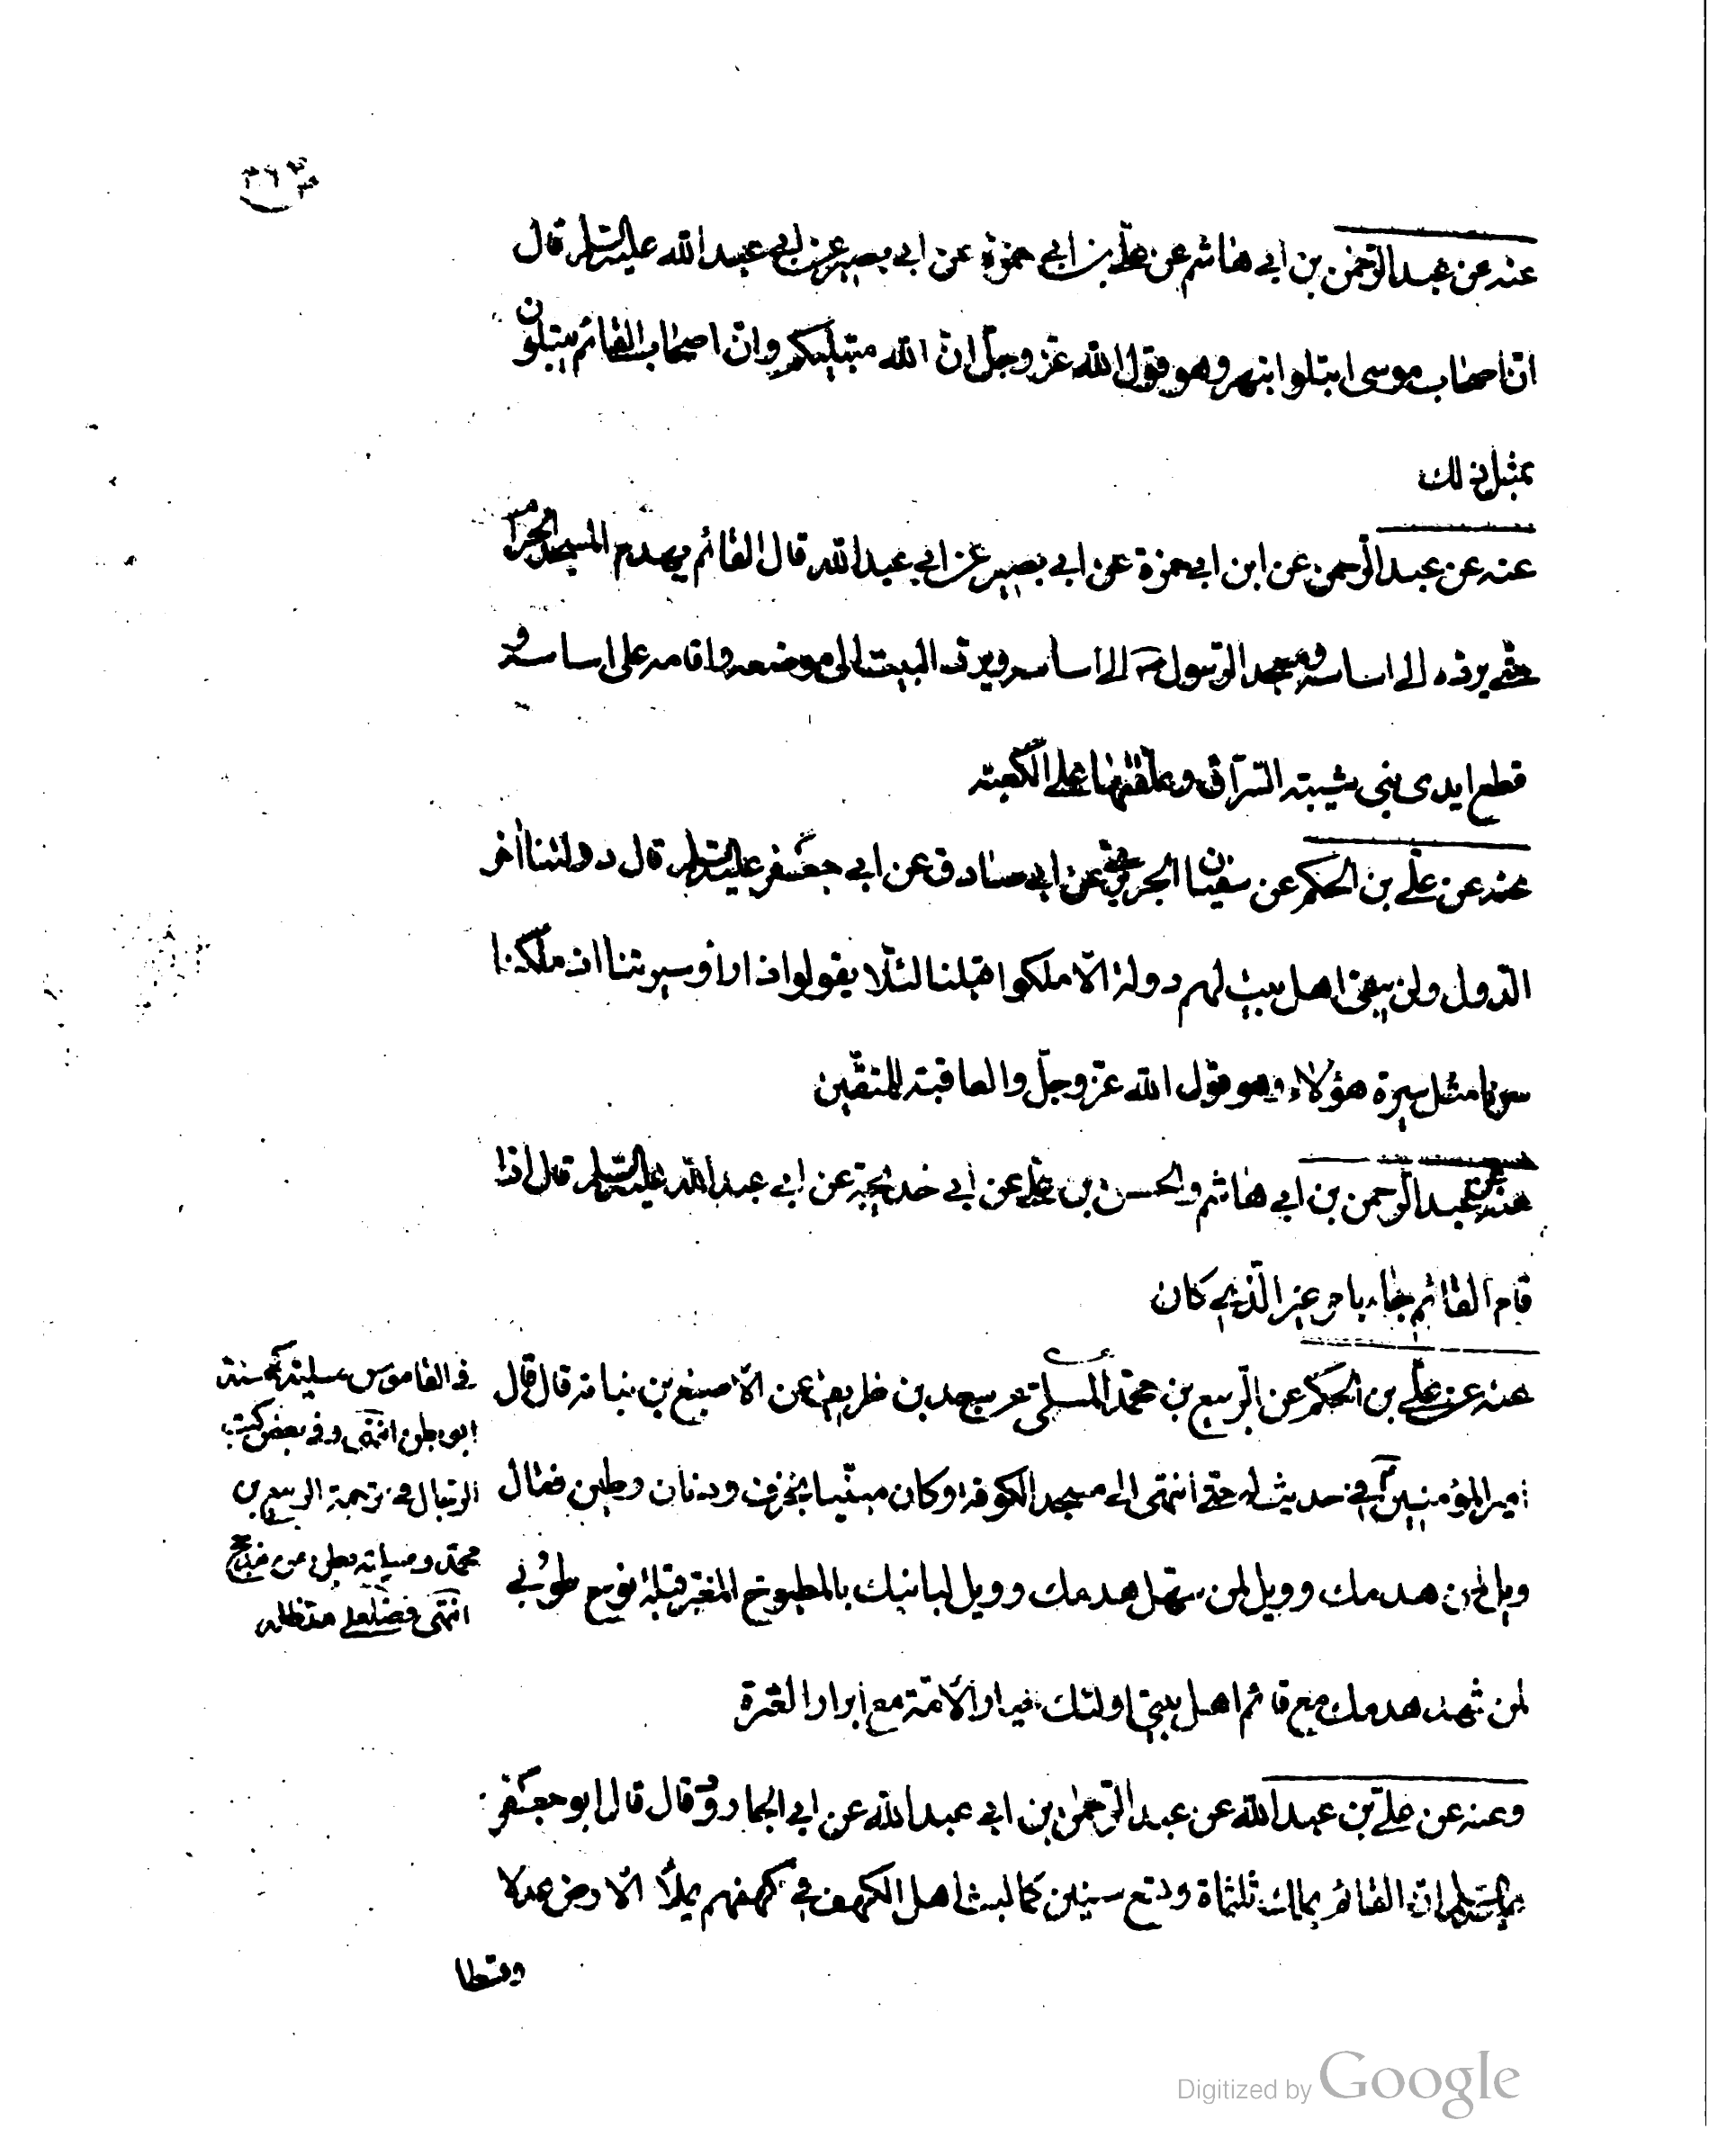 ٣٦٣
عنه عن عبدالرحمن بن ابي هاشم عن علي بن ابي حمزة عن ابي بصير عن ابي عبدالله عليه السلم قال
ان اصحاب موسى ابتلوا بنهر وهو قول الله عز وجل ان الله مبتليكم وان اصحاب القائم يبتلون
بمثل ذلك
عنه عن عبد الرحمن عن ابن ابي حمزة عن ابي بصير عن ابي عبدالله قال القائم يهدم المسجد الحرام
حتى يرده الى اساسه ومسجد الرسول ص الى اساسه ويرد البيت الى موضعه واقامه على اساسه و
قطع ايدى بنى شيبة السراق وعلقها على الكعبة
عنه عن علي بن الحكم عن سفين الجريري عن ابي صادق عن ابي جعفر عليه السلم قال دولتنا اخر
الدول ولن يبقى اهل بيت لهم دولة الا ملكوا قبلنا لئلا يقولوا اذا راوا سيرتنا اذ ملكنا
سرنا مثل سيرة هؤلاء وهو قول الله عز وجل والعاقبة للمتقين
عنه عن عبدالرحمن بن ابي هاشم والحسن بن علي عن ابي خديجة عن ابي عبدالله عليه السلم قال اذا
قام القائم جاء بامر غير الذي كان
عنه عن علي بن الحكم عن الربيع بن محمد المسلي عن سعد بن ظريف عن الاصبغ بن نباتة قال قال
امير المؤمنين في حديث له حتى انتهى الى مسجد الكوفة وكان مبنيا بخزف ودنان وطين فقال
ويل لمن هدمك وويل لمن سهل هدمك وويل لبانيك بالمطبوخ المغير قبلة نوح طوبى
لمن شهد هدمك مع قائم اهل بيتي اولئك خيار الامة مع ابرار العترة
وعنه عن علي بن عبدالله عن عبدالرحمن بن ابي عبدالله عن ابي الجارود قال قال ابو جعفر
عليه السلم ان القائم يملك ثلثماة وتسع سنين كما لبث اهل الكهف في كهفهم يملأ الارض عدلا
وقسطا
في القاموس مسلية كمحسنة
ابو بطن انتهى وفي بعض كتب
الرجال في ترجمة الربيع بن
محمد ومسلية بطن من مذحج
انتهى
Digitized by Google